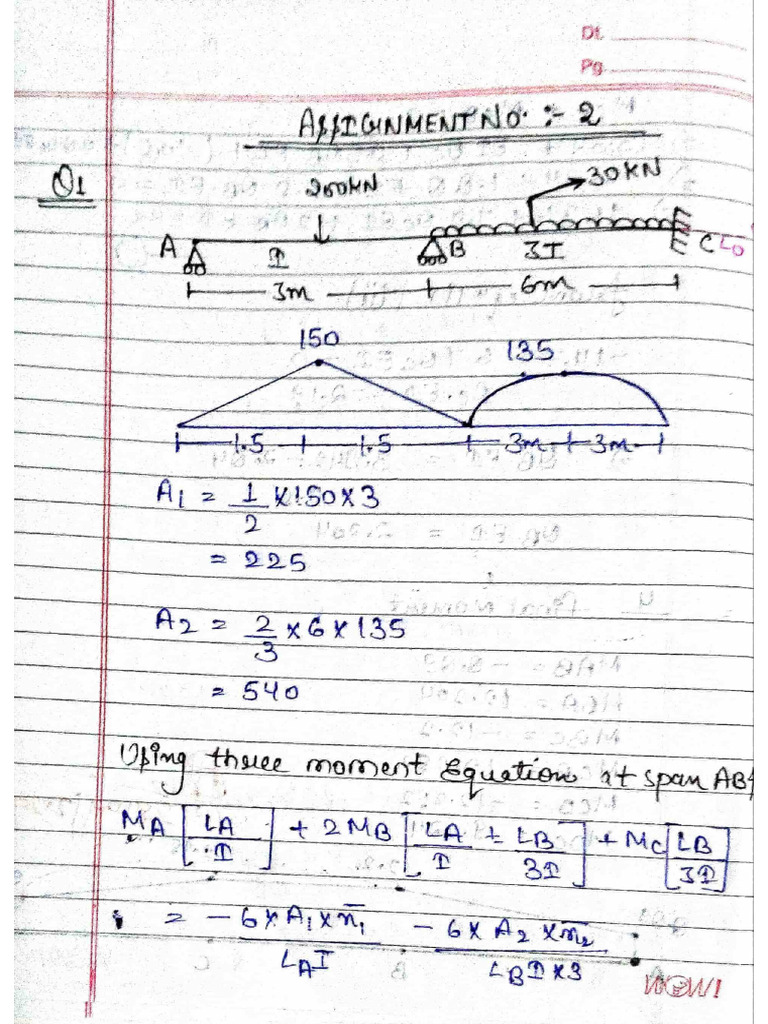 Dt.
Pg.
ASSIGNMENT NO. :- 2
Q1
200KN
30KN
A
I
B
3I
C
L0
3m
6m
150
135
1.5
1.5
3m
3m
A1 = 1/2 × 150 × 3
= 225
A2 = 2/3 × 6 × 135
= 540
Using three moment Equation at span AB
MA [LA/I] + 2MB [LA/I + LB/3I] + MC [LB/3I]
= - 6×A1×x̄1/LAI - 6×A2×x̄2/LBI×3
WOW!